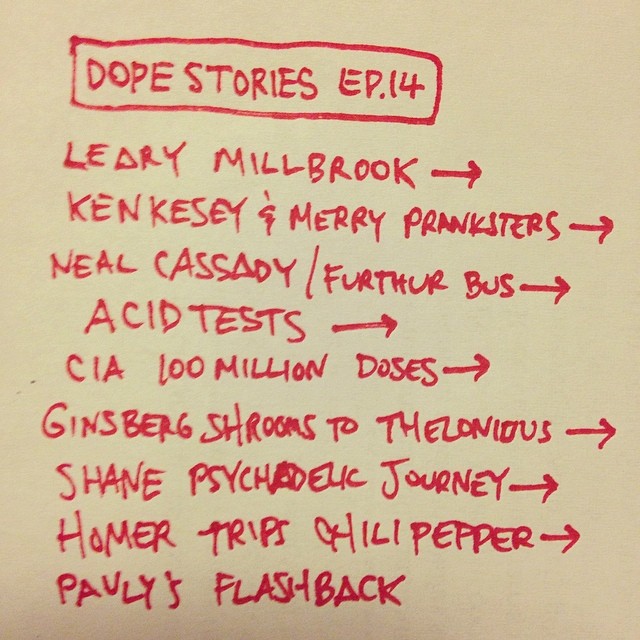 DOPE STORIES EP.14
LEARY MILLBROOK →
KEN KESEY & MERRY PRANKSTERS →
NEAL CASSADY / FURTHUR BUS →
ACID TESTS →
CIA 100 MILLION DOSES →
GINSBERG SHROOMS TO THELONIOUS →
SHANE PSYCHADELIC JOURNEY →
HOMER TRIPS CHILI PEPPER →
PAULY'S FLASHBACK